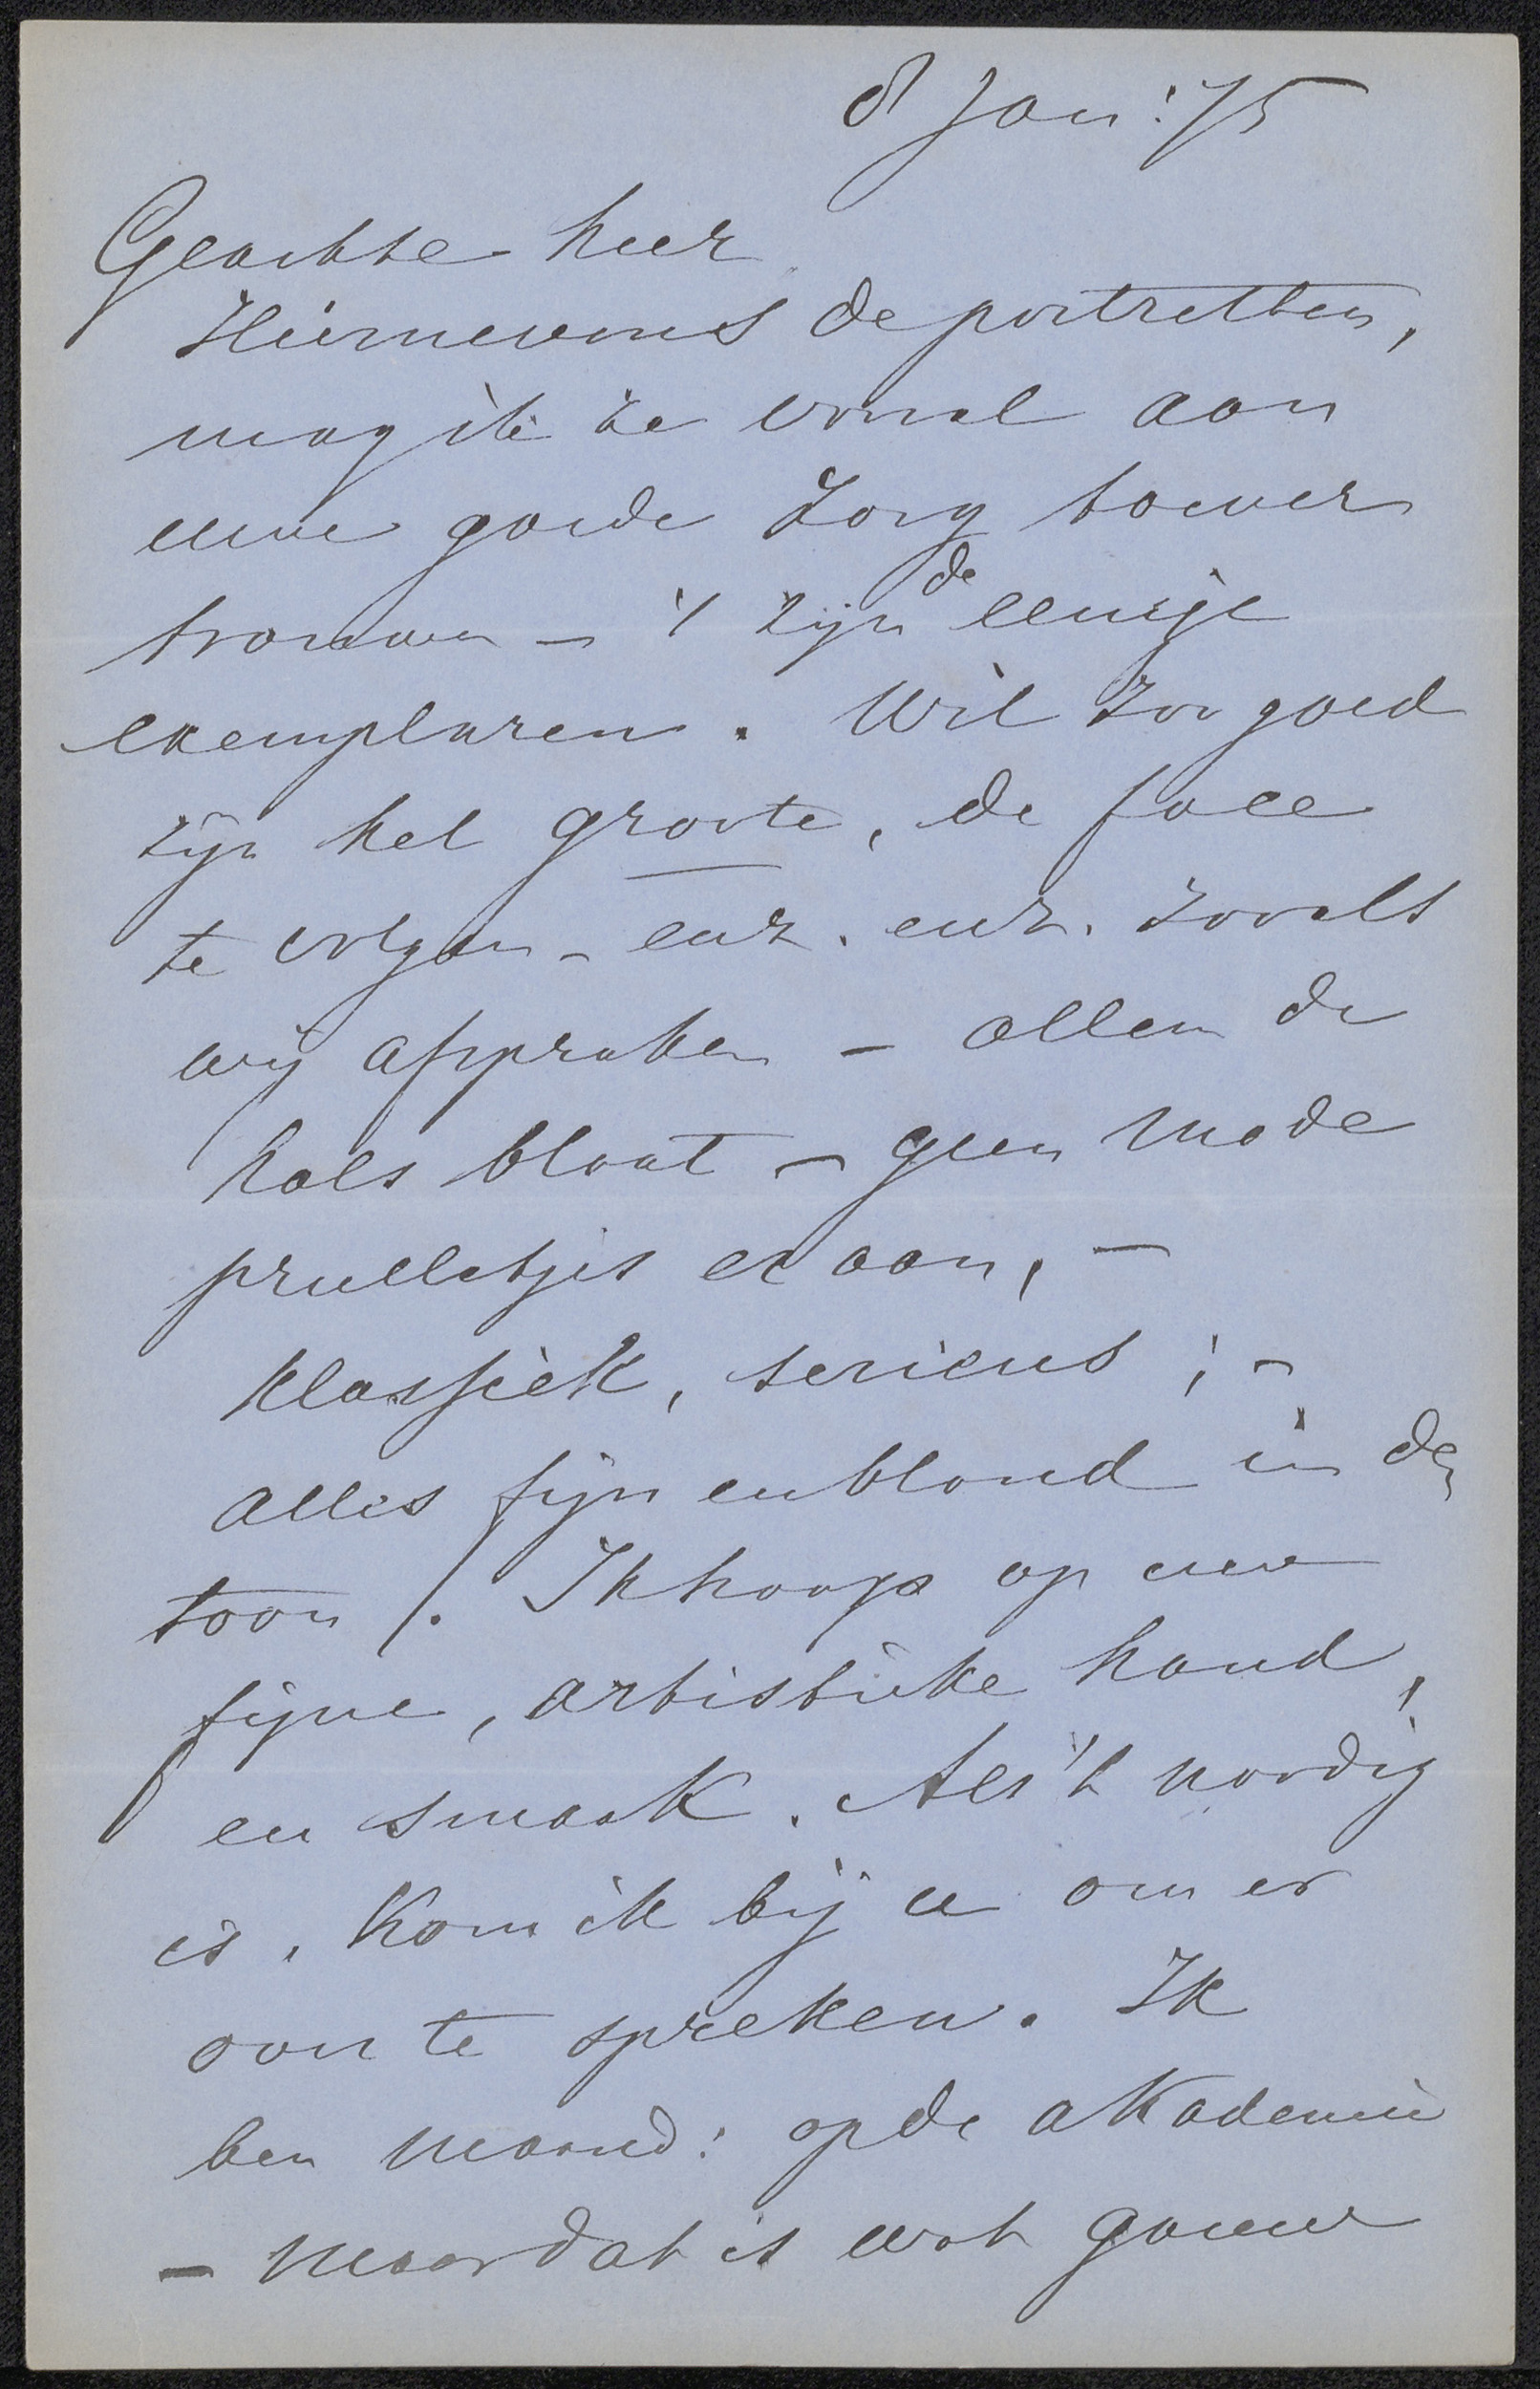 8 Jan: 75
Geachte heer
Hiernevens de portretten,
mag ik ze vooral aan
uwe goede zorg toever
trouwen – 't zijn de eenige
exemplaren. Wil zoo goed
zijn het groote, de face
te volgen – enz. enz. zooals
wij afspraken – alleen de
hals bloot – geen mode
prulletjes er aan, –
klassiek, serieus ; –
alles fijn en blond in den
toon /. Ik hoop op uw
fijne, artistieke hand,
en smaak. Als 't noodig
is, kom ik bij u om er
over te spreken. Ik
ben maand: op de akademie
– maar dat is wat gauw